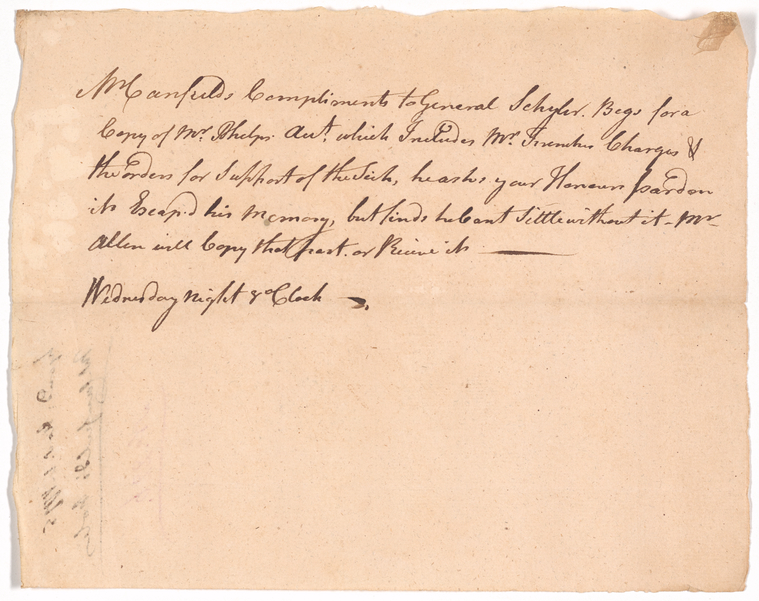 Mr Canfields Compliments to General Schyler. Begs for a
Copy of Mr. Phelps Act. which Includes Mr. Frenches Charges &
the orders for Support of the Sick, he asks your Honours pardon
its Escap'd his Memory, but finds he Cant Settle without it - Mr
Allen will Copy that part. or Recive it
Wednesday night 8 oClock